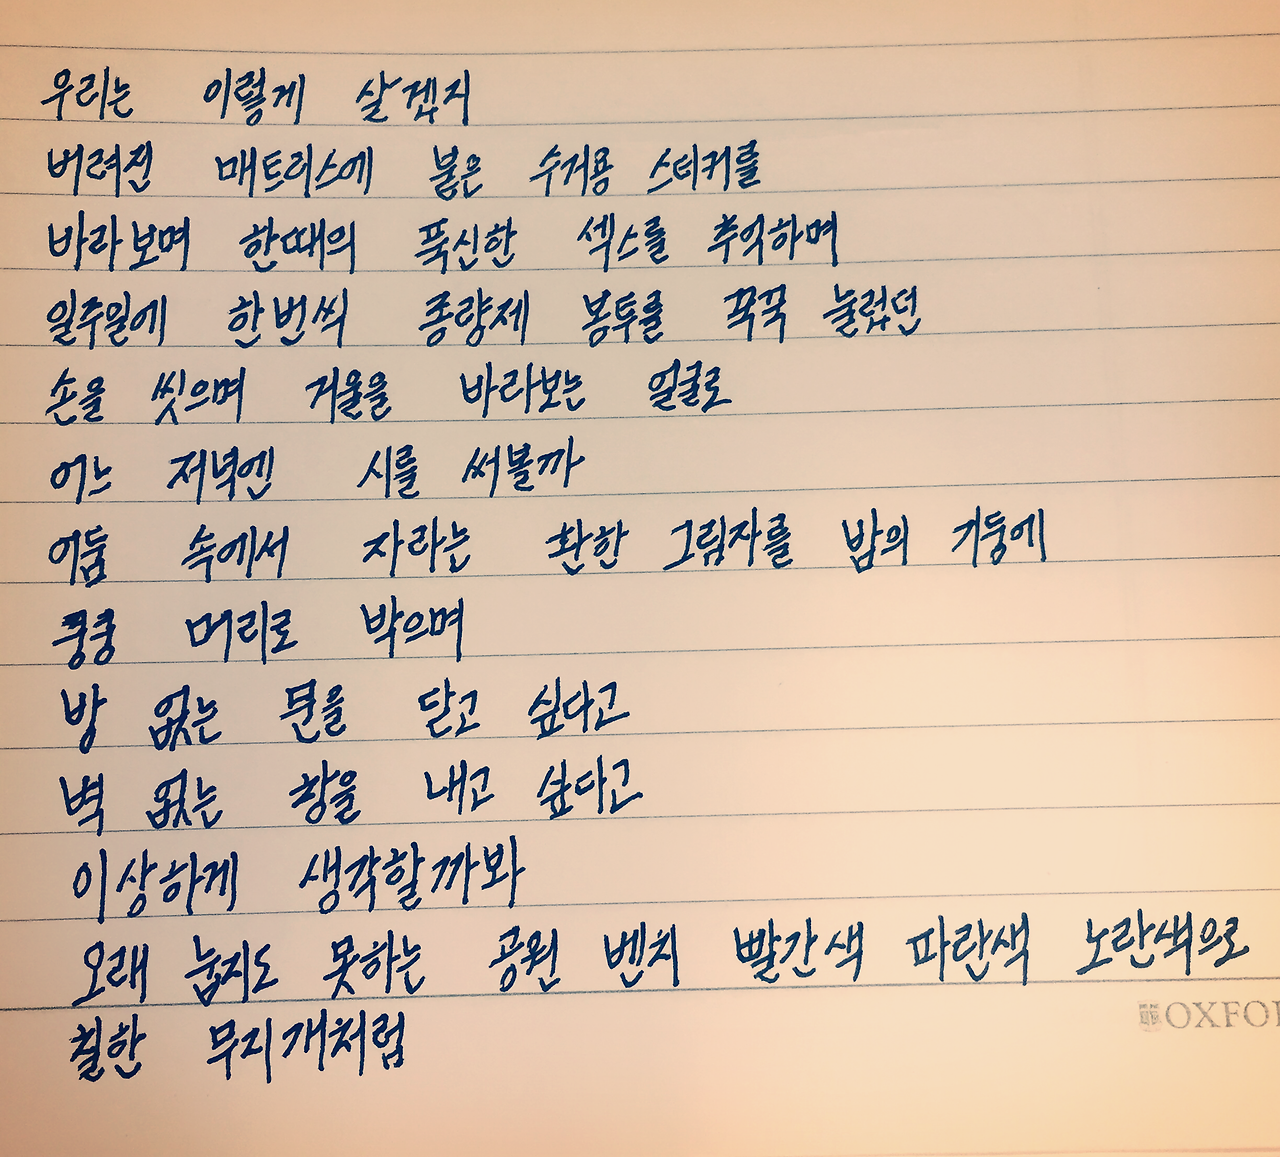 우리는 이렇게 살겠지
버려진 매트리스에 붙은 수거용 스티커를
바라보며 한때의 푹신한 섹스를 추억하며
일주일에 한번씩 종량제 봉투를 꾹꾹 눌렀던
손을 씻으며 거울을 바라보는 얼굴로
어느 저녁엔 시를 써볼까
어둠 속에서 자라는 환한 그림자를 밤의 기둥에
쿵쿵 머리로 박으며
방 없는 문을 닫고 싶다고
벽 없는 창을 내고 싶다고
이상하게 생각할까봐
오래 눕지도 못하는 공원 벤치 빨간색 파란색 노란색으로
칠한 무지개처럼
OXFOR